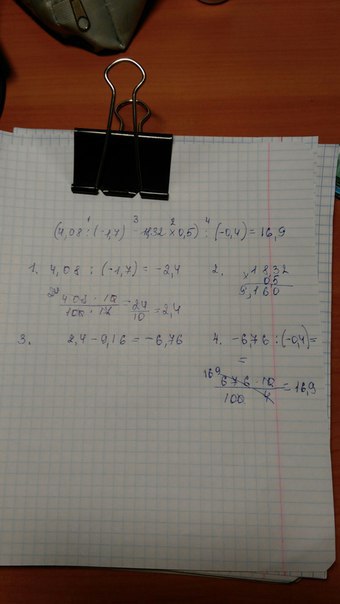 (4,08 : (-1,7) - 1,32 × 0,5) : (-0,4) = 16,9
1. 4,08 : (-1,7) = -2,4
408 · 10 / 100 · 17 = 24 / 10 = 2,4
2. × 18,32
0,5
9,160
3. 2,4 - 9,16 = -6,76
4. -6,76 : (-0,4) =
=
169
676 · 10 / 100 4 = 16,9